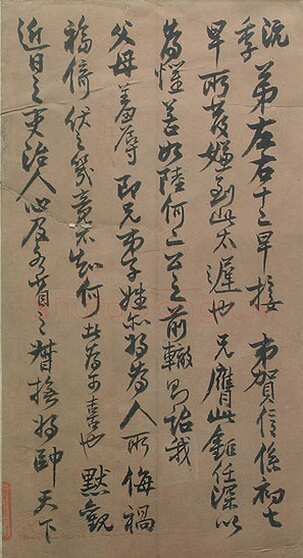 沅季弟左右十二早接 弟賀信係初七
早所發嫌到此太遲也 兄膺此鉅任深以
為懼若如陸何二公之前轍則詒我
父母羞辱即兄弟子姪亦將為人所侮禍
福倚伏之幾竟不知何者為可喜也 默觀
近日之吏治人心及各省之督撫將帥天下